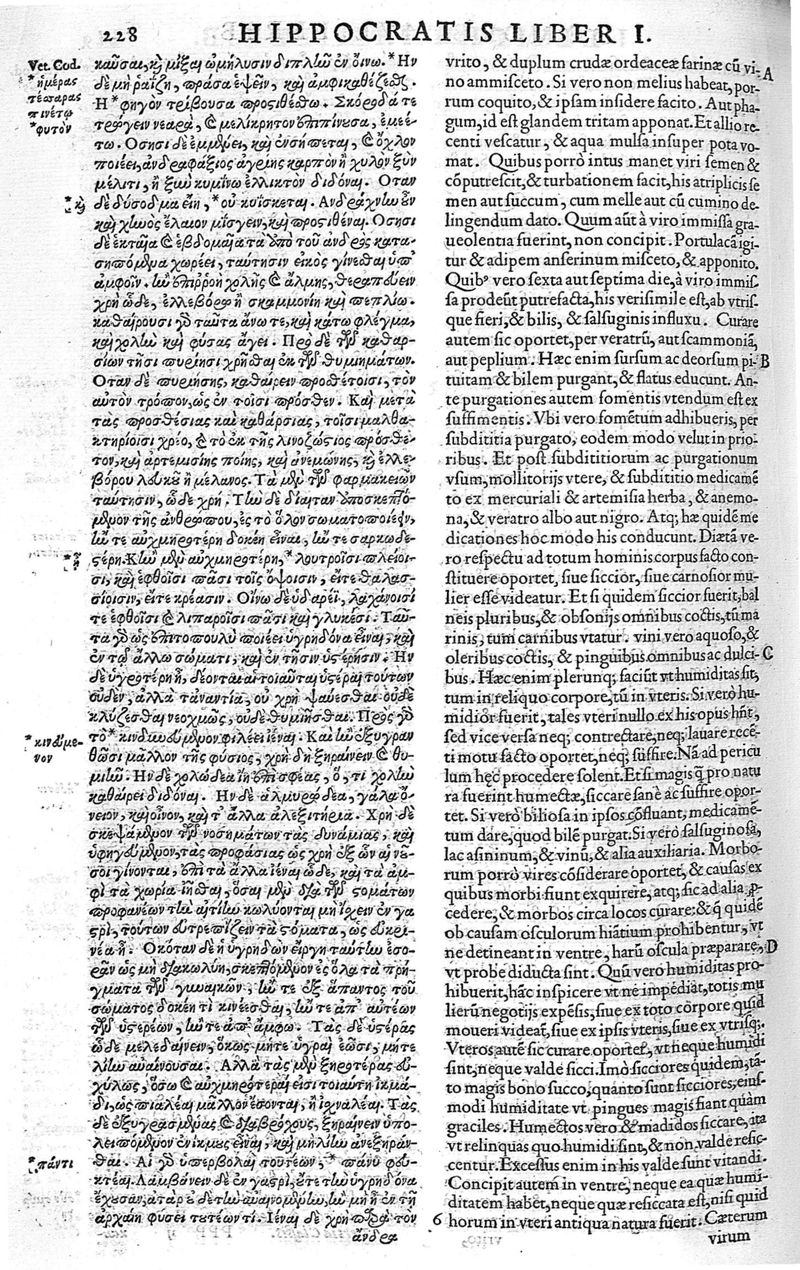 228 HIPPOCRATIS LIBER I.
Vet. Cod.
*ἡμέρας
τέσσαρας
πινέτω
*φυτὸν
*καὶ
*ἢ
*κινδυμε-
νον
*πάντι
καῦσαι, καὶ μίξαι ὠμήλυσιν διπλῶ ἐν οἴνῳ. *Ην
δὲ μὴ ῥαΐζῃ, πράσα ἑψεῖν, καὶ ἀμφικαθέζεσθαι.
Η *φηγὸν τρίβουσα προσιθέσθω. Σκόροδά τε
τρώγειν νεαρὰ, καὶ μελίκρητον ἐπιπίνουσα, ἐμεέ-
τω. Οσησι δὲ ἐμμύει, καὶ ἐνσήπεται, καὶ ὄχλον
ποιέει, ἀνδραφάξιος ἀγρίης καρπὸν ἢ χυλὸν ξὺν
μέλιτι, ἢ ξὺν κυμίνῳ ἐλλικτὸν διδόναι. Οταν
δὲ δύσοδμα ἔῃ, *οὐ κυΐσκεται. Ανδράχνην ἓν
καὶ χηνὸς ἔλαιον μίσγειν, καὶ προσιθέναι. Οσησι
δὲ ἑκταῖα καὶ ἑβδομαῖα τὰ ὑπὸ τοῦ ἀνδρὸς κατα-
σηπόμενα χωρέει, ταύτησιν εἰκὸς γίνεσθαι ὑπ'
ἀμφοῖν. ἢν ἐπιῤῥοῇ χολῆς καὶ ἅλμης, θεραπεύειν
χρὴ ὧδε, ἑλλεβόρῳ ἢ σκαμμονίῃ καὶ πεπλίῳ.
καθαίρουσι γὰρ ταῦτα ἄνω τε, καὶ κάτω φλέγμα,
καὶ χολὴν καὶ φύσας ἄγει. Πρὸ δὲ τῶν καθαρ-
σίων τῇσι πυρίῃσι χρῆσθαι ἐκ τῶν θυμιημάτων.
Οταν δὲ πυριήσῃς, καθαίρειν προσθέτοισι, τὸν
αὐτὸν τρόπον, ὡς ἐν τοῖσι πρόσθεν. Καὶ μετὰ
τὰς προσθέσιας καὶ καθάρσιας, τοῖσι μαλθα-
κτηρίοισι χρέο, καὶ τὸ ἐκ τῆς λινοζώστιος πρόσθε-
τον, καὶ ἀρτεμισίης ποίης, καὶ ἀνεμώνης, καὶ ἑλλε-
βόρου λευκοῦ ἢ μέλανος. Τὰ μὲν τῶν φαρμακείων
ταύτησιν, ὧδε χρή. Τὴν δὲ δίαιταν ὑποσκεπτό-
μενον τῆς ἀνθρώπου, ἐς τὸ ὅλον σωματοποιέειν,
ἤν τε αὐχμηροτέρη δοκέῃ εἶναι, ἤν τε σαρκωδε-
στέρη. Κἢν μὲν αὐχμηροτέρη, *λουτροῖσι πλείοι-
σι, καὶ ἑφθοῖσι πᾶσι τοῖς ὄψοισιν, εἴτε θαλασ-
σίοισιν, εἴτε κρέασιν. Οἴνῳ δὲ ὑδαρεῖ, λαχάνοισί
τε ἑφθοῖσι καὶ λιπαροῖσι πᾶσι καὶ γλυκέσι. Ταῦ-
τα γὰρ ὡς ἐπιτοπουλὺ ποιέει ὑγρηδόνα εἶναι, καὶ
ἐν τῷ ἄλλῳ σώματι, καὶ ἐν τῇσιν ὑστέρῃσιν. Ην
δὲ ὑγροτέρη ᾖ, δέονται αἱ τοιαῦται ὑστέραι τούτων
οὐδὲν, ἀλλὰ τἀναντία, οὐ χρὴ ψαύεσθαι οὐδὲ
κλύζεσθαι νεοχμῶς, οὐδὲ θυμιῆσθαι. Πρὸς γὰρ
τὸ *κινδυνευόμενον φιλέει ἰέναι. Καὶ ἢν ἐξυγραν-
θῶσι μᾶλλον τῆς φύσιος, χρὴ δὴ ξηραίνειν καὶ θυ-
μιῆν. Ην δὲ χολώδεα ᾖ ἐπὶ σφέας, ὅ, τι χολὴν
καθαίρει διδόναι. Ην δὲ ἁλμυρώδεα, γάλα ὄ-
νειον, καὶ οἶνον, καὶ τ' ἄλλα ἀλεξιτήρια. Χρὴ δὲ
σκεψάμενον τῶν νοσημάτων τὰς δυνάμιας, καὶ
ὑφηγεύμενον, τὰς προφάσιας ὡς χρὴ ἐξ ὧν αἱ νοῦ-
σοι γίνονται, ἐπὶ τὰ ἄλλα ἰέναι ὧδε, καὶ τὰ ἀμ-
φὶ τὰ χωρία ἰῆσθαι, ὅσαι μὲν διὰ τῶν στομάτων
προφανέων τὴν αἰτίην κωλύονται μὴ ἴσχειν ἐν γα-
στρὶ, τούτων εὐτρεπίζειν τὰ στόματα, ὡς εὐκρι-
νέα ᾖ. Οκόταν δὲ ἡ ὑγρηδὼν εἴργῃ ταύτην ἐσο-
ρᾶν ὡς μὴ διακωλύῃ, σκεπτόμενον ἐς ὅλα τὰ πρή-
γματα τῶν γυναικῶν, ἤν τε ἐξ ἅπαντος τοῦ
σώματος δοκέῃ τι κινέεσθαι, ἤν τε ἀπ' αὐτέων
τῶν ὑστερέων, ἤν τε ἀπ' ἄμφω. Τὰς δὲ ὑστέρας
ὧδε μελεδαίνειν, ὅκως μήτε ὑγραὶ ἔωσι, μήτε
λίην αὐαίνουσαι. Αλλὰ τὰς μὲν ξηροτέρας εὐ-
χύλως, ὅσῳ καὶ αὐχμηρότεραί εἰσι τοιαύτῃ ἰκμά-
δι, ὡς πιαλέαι μᾶλλον ἔσονται, ἢ ἰσχναλέαι. Τὰς
δὲ ἐξυγρασμένας καὶ διαβρόχους, ξηραίνειν ὑπο-
λειπόμενον ἔνικμους εἶναι, καὶ μὴ λίην ἀνεξηράν-
θαι. Αἱ γὰρ ὑπερβολαὶ τουτέων, *πάνυ φευ-
κτέαι. Λαμβάνειν δὲ ἐν γαστρὶ, εἴτε τὴν ὑγρηδόνα
ἔχουσαν, ἀτὰρ οὐδὲ τὴν αὐαινομένην, ἢν μὴ ᾖ ἐν τῇ
ἀρχαίῃ φύσει τουτέων τι. Ιέναι δὲ χρὴ παρὰ τὸν
ἄνδρα
vrito, & duplum crudæ ordeaceæ farinæ cū vi- A
no ammisceto. Si vero non melius habeat, por-
rum coquito, & ipsam insidere facito. Aut pha-
gum, id est glandem tritam apponat. Et allio re-
centi vescatur, & aqua mulsa insuper pota vo-
mat. Quibus porrò intus manet viri semen &
cōputrescit, & turbationem facit, his atriplicis se
men aut succum, cum melle aut cū cumino de-
lingendum dato. Quum aūt à viro immissa gra-
ueolentia fuerint, non concipit. Portulacā igi-
tur & adipem anserinum misceto, & apponito.
Quibꝰ vero sexta aut septima die, à viro immis-
sa prodeūt putrefacta, his verisimile est, ab vtris-
que fieri, & bilis, & salsuginis influxu. Curare
autem sic oportet, per veratrū, aut scammoniā,
aut peplium. Hæc enim sursum ac deorsum pi- B
tuitam & bilem purgant, & flatus educunt. An-
te purgationes autem fomentis vtendum est ex
suffimentis. Vbi vero fomētum adhibueris, per
subdititia purgato, eodem modo velut in prio-
ribus. Et post subdititiorum ac purgationum
vsum, mollitorijs vtere, & subdititio medicamē
to ex mercuriali & artemisia herba, & anemo-
na, & veratro albo aut nigro. Atq; hæ quidē me
dicationes hoc modo his conducunt. Diætā ve-
ro respectu ad totum hominis corpus facto con-
stituere oportet, siue siccior, siue carnosior mu-
lier esse videatur. Et si quidem siccior fuerit, bal
neis pluribus, & obsonijs omnibus coctis, tū ma
rinis, tum carnibus vtatur. vini vero aquoso, &
oleribus coctis, & pinguibus omnibus ac dulci- C
bus. Hæc enim plerunq; faciūt vt humiditas sit,
tum in reliquo corpore, tū in vteris. Si vero hu-
midior fuerit, tales vteri nullo ex his opus hn̄t,
sed vice versa neq; contrectare, neq; lauare rece-
ti motu facto oportet, neq; suffire. Nā ad pericu
lum hęc procedere solent. Et si magis q̄ pro natu
ra fuerint humectæ, siccare sanè ac suffire opor-
tet. Si vero biliosa in ipsos cōfluant, medicamē-
tum dare, quod bilē purgat. Si vero salsuginosa,
lac asininum, & vinū, & alia auxiliaria. Morbo-
rum porrò vires cōsiderare oportet, & causas ex
quibus morbi fiunt exquirere, atq; sic ad alia ꝓ
cedere, & morbos circa locos curare: & q̄ quidē
ob causam osculorum hiātium prohibentur, vt
ne detineant in ventre, harū oscula præparare, D
vt probe diducta sint. Quū vero humiditas pro-
hibuerit, hāc inspicere vt ne impēdiat, totis mu
lierū negotijs expēsis, siue ex toto corpore quid
moueri videat̃, siue ex ipsis vteris, siue ex vtrisq;.
Vteros autē sic curare oportet, vt neque humidi
sint, neque valde sicci. Imò sicciores quidem, tā-
to magis bono succo, quanto sunt sicciores, eius-
modi humiditate vt pingues magis fiant quàm
graciles. Humectos vero & madidos siccare, ita
vt relinquas quo humidi sint, & non valde resic-
centur. Excessus enim in his valde sunt vitandi.
Concipit autem in ventre, neque ea quæ humi-
ditatem habet, neque quæ resiccata est, nisi quid
6 horum in vteri antiqua natura fuerit. Cæterum
virum